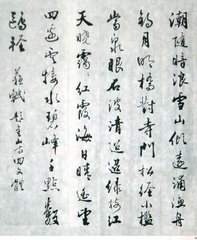 潮隨暗浪雪山傾遠浦漁舟
釣月明橋對寺門松徑小檻
當泉眼石波清迢迢綠樹江
天曉靄靄紅霞海日晴遙望
四邊雲接水碧峰千點數
鷗輕 蘇軾題金山寺回文體